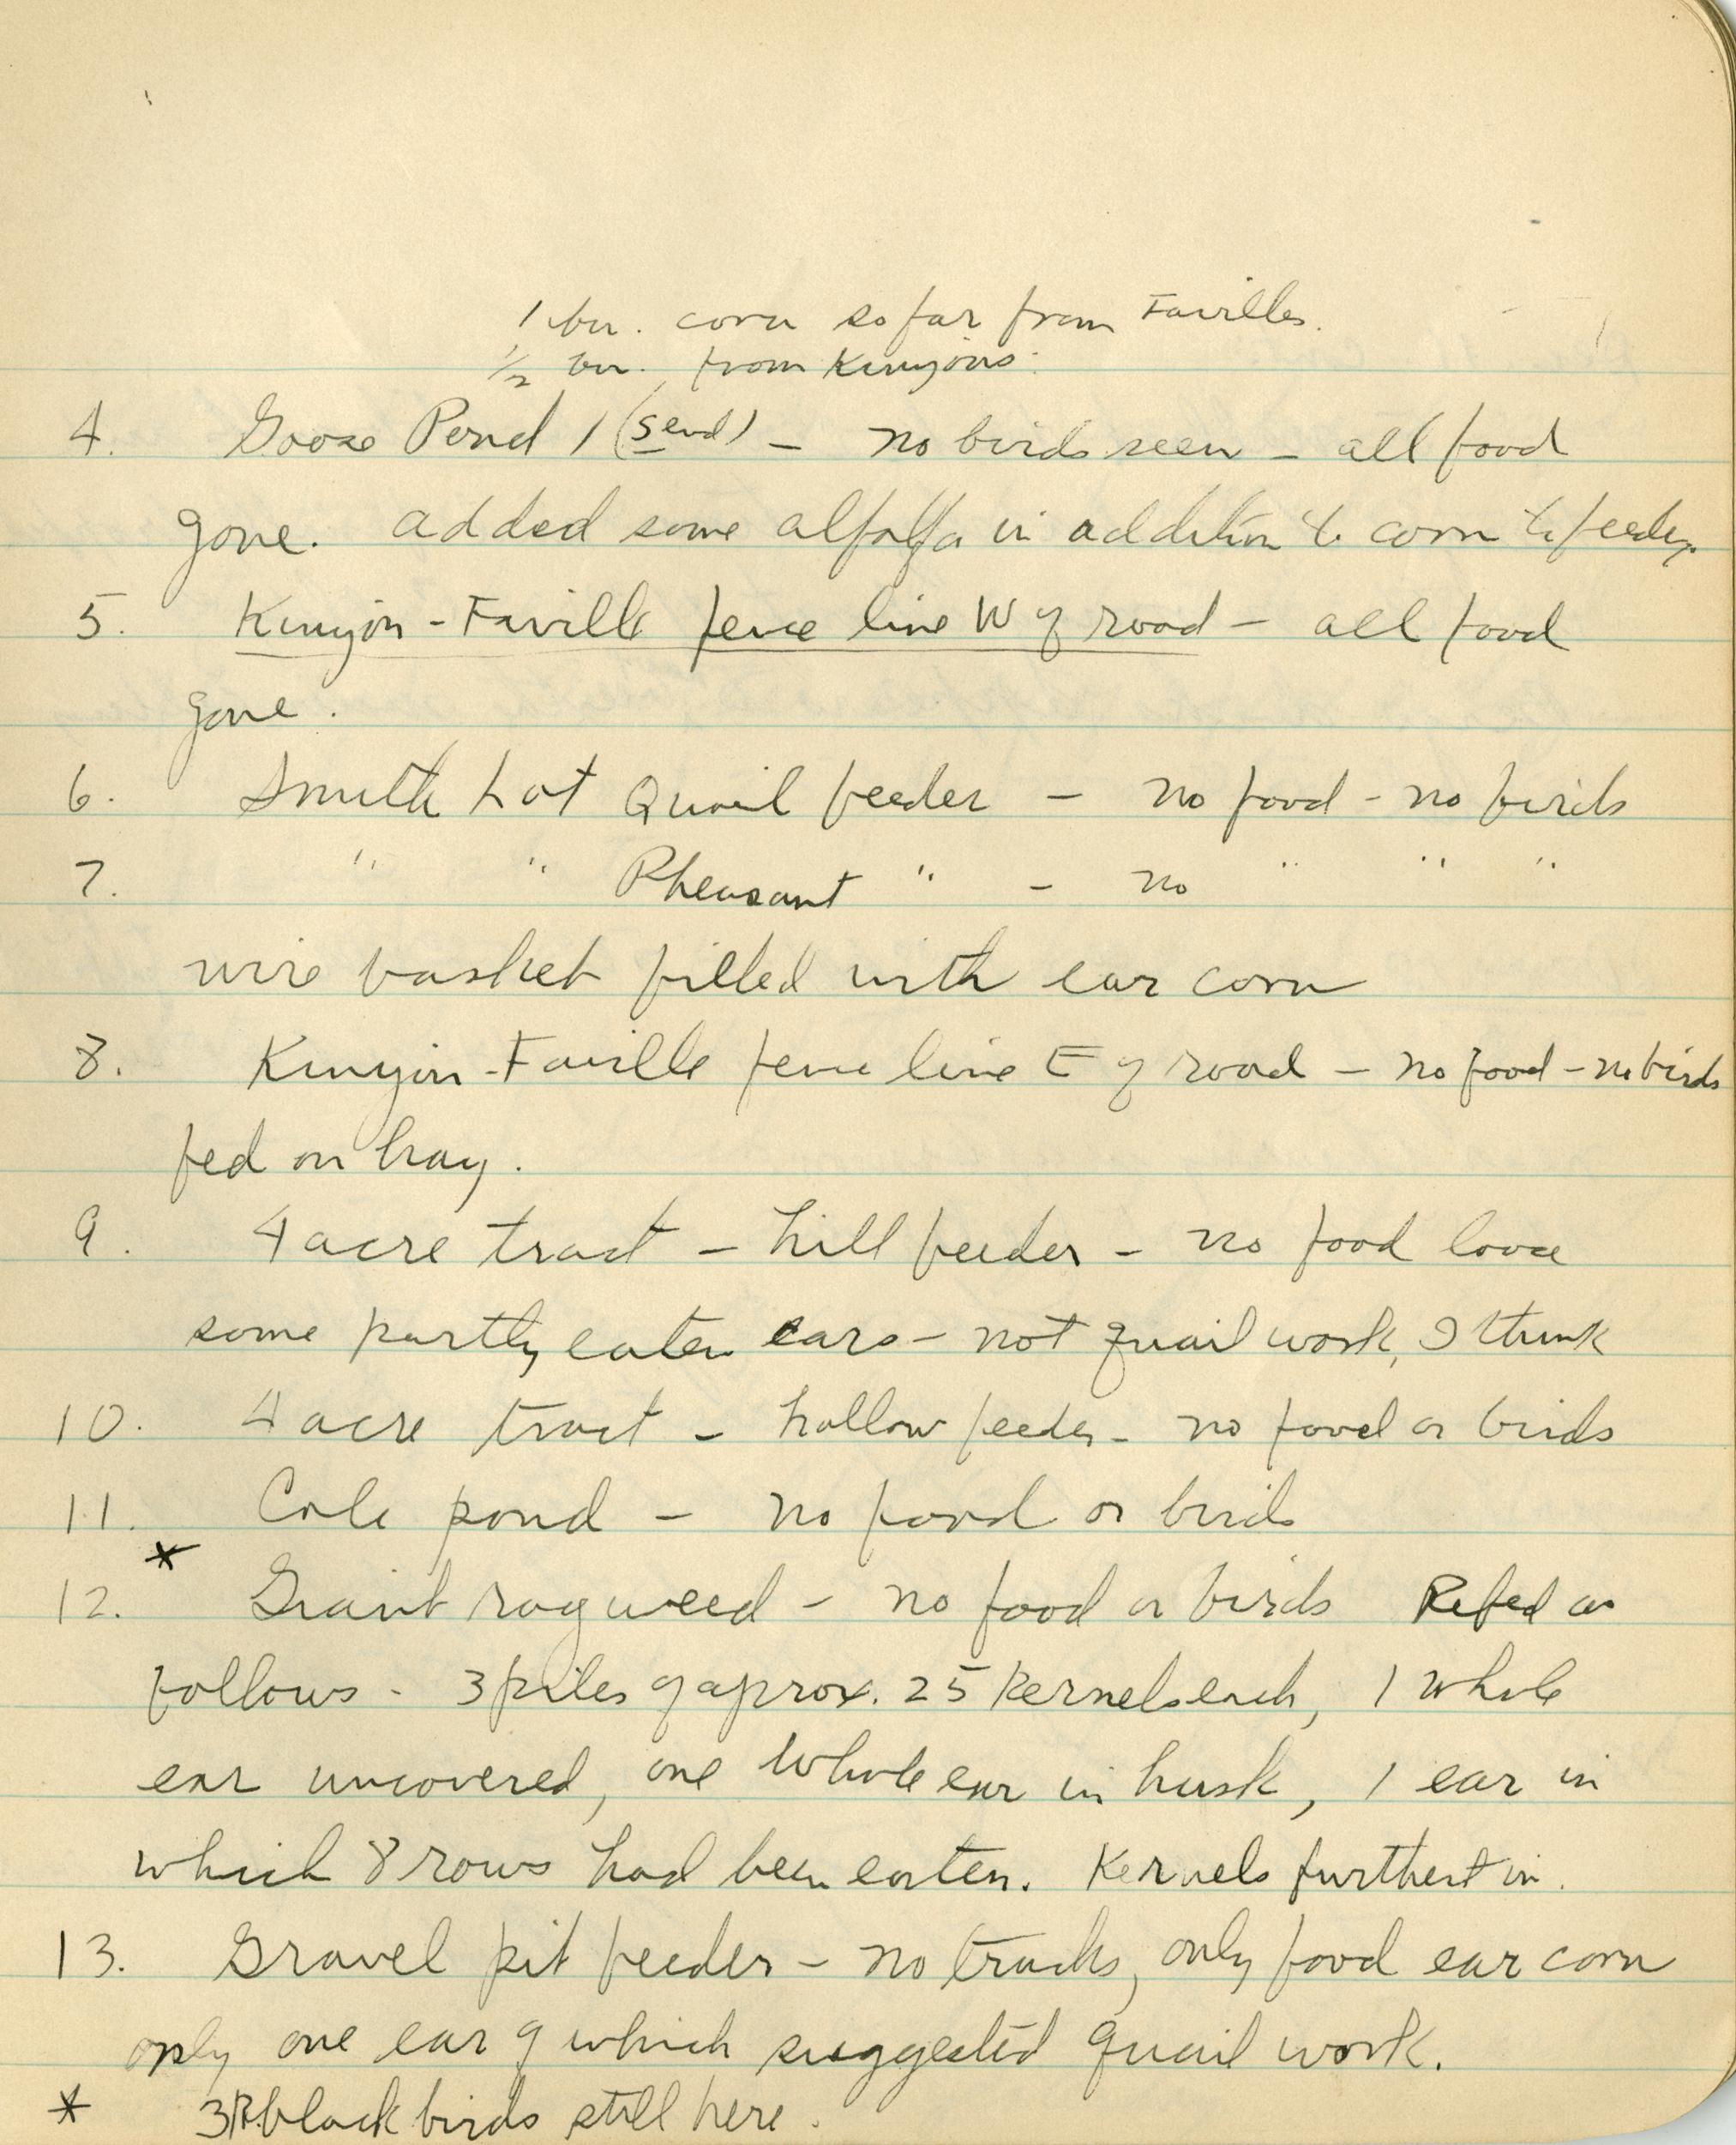 1 bu. corn so far from Favilles.
1/2 bu. from Kinyons.
4. Goose Pond 1 (S end) - no birds seen - all food
gone. added some alfalfa in addition to corn to feeder.
5. Kinyon-Faville fence line W of road - all food
gone.
6. Smith Lot Quail feeder - no food - no birds
7. " " Pheasant " - no " " "
wire basket filled with ear corn
8. Kinyon-Faville fence line E of road - no food - no birds
fed on hay.
9. 4 acre tract - hill feeder - no food loose
some partly eaten ears - not quail work, I think
10. 4 acre tract - hollow feeder - no food or birds
11. Cole pond - no food or birds
*
12. Giant ragweed - no food or birds Refed as
follows - 3 piles of aprox. 25 kernels each, 1 whole
ear uncovered, one whole ear in husk, 1 ear in
which 8 rows had been eaten. Kernels furthest in.
13. Gravel pit feeder - no tracks, only food ear corn
only one ear of which suggested quail work.
* 3 R. blackbirds still here.